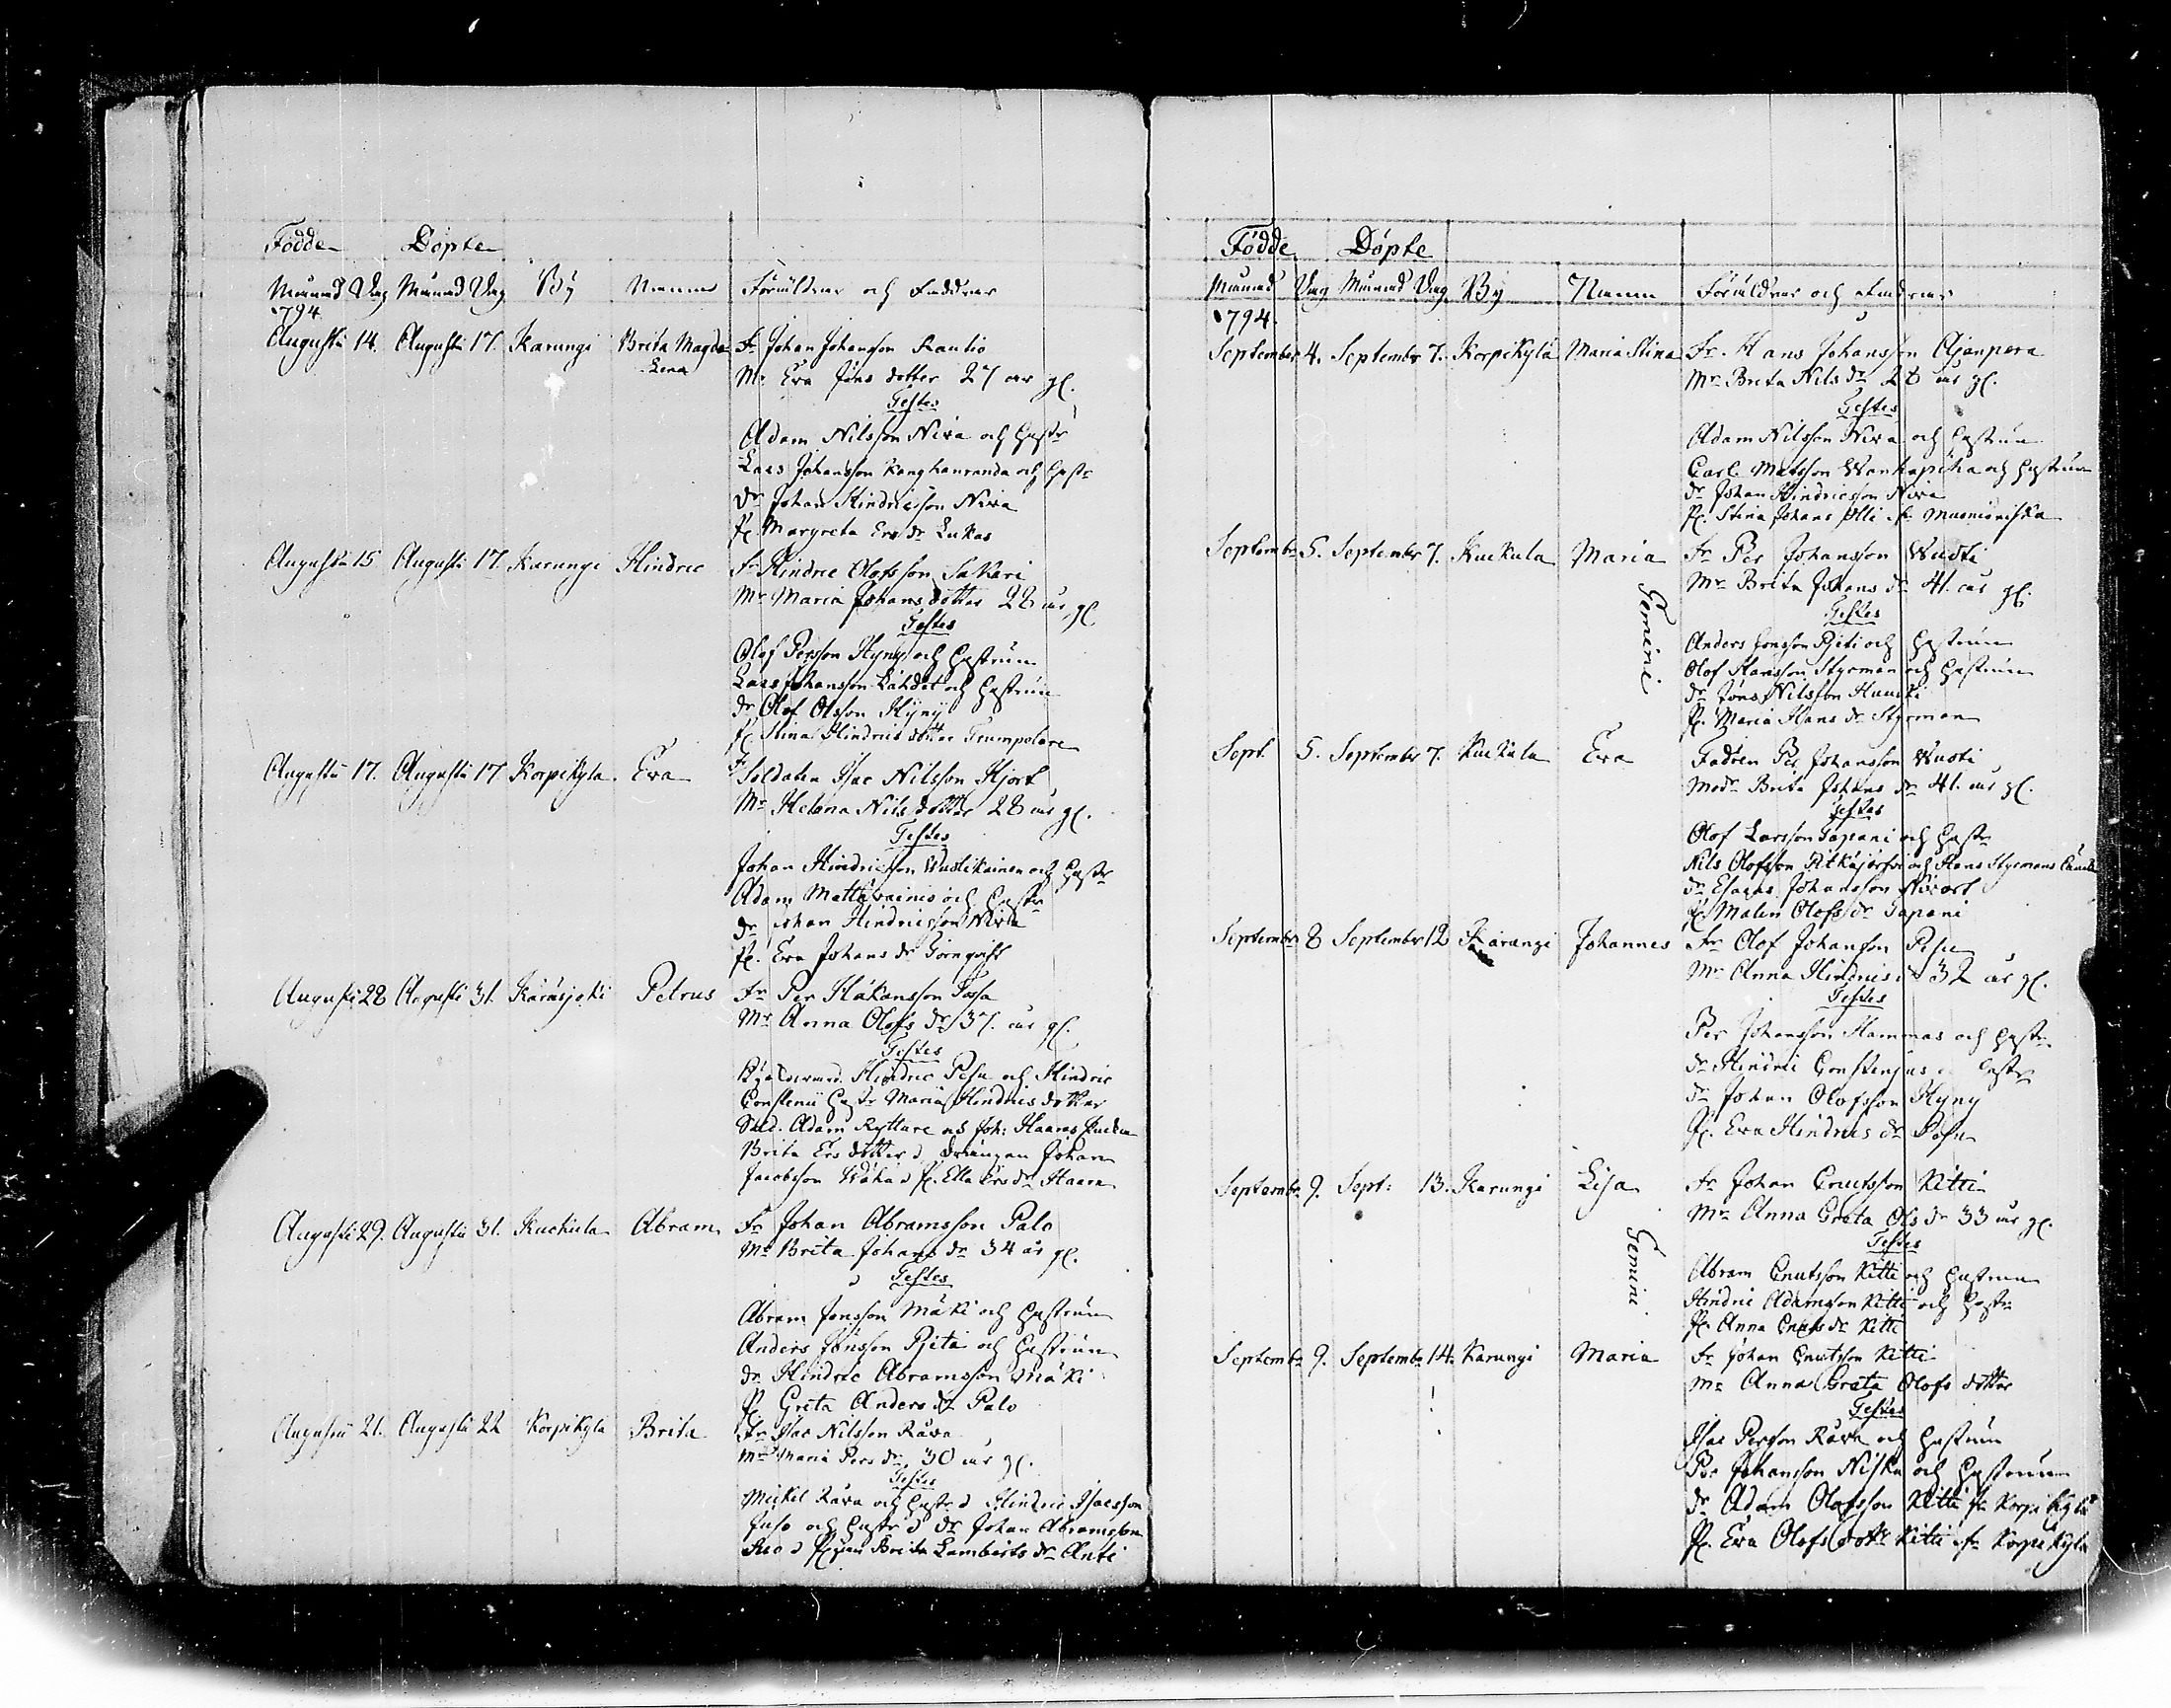 Födde Döpte
Månad Dag Månad Dag By Namn Föräldrar och Faddrar
1794
Augusti 14. Augusti 17. Karungi Brita Magda Fr Johan Johansson Rautio
Lena Mr Eva Jöns dotter 27 år gl.
Testes
Adam Nilsson Niva och Hustr
Lars Johansson Kanghanranda och Hustr
Dr Johan Hindricsson Niva
P. Margreta Ers dr Lukas
Augusti 15 Augusti 17. Karungi Hindric Fr Hindric Olofsson Sakari
Mr Maria Johans dotter 28 år gl.
Testes
Olof Persson Hyny och Hustrun
Lars Johansson Lahdet och Hustrun
dr Olof Olsson Hyny
P. Stina Hindrics dotter Trumpolare
Augusti 17. Augusti 17 Korpikyla Eva Fr Soldaten Isac Nilsson Hjort
Mr Helena Nils dotter 28 år gl.
Testes
Johan Hindricsson Wustikainen och Hustr
Adam Mattä och Hustr
dr Johan Hindricsson Niva
P. Eva Johans dr Görnqvist
Augusti 28 Augusti 31. Karäsjoki Petrus Fr Per Håkansson
Mr Anna Olofs dr 37. år gl.
Testes
Hindric Pesu och Hindric
Hustr Maria Hindrics dotter
Sold. Adam Ryttare Joh: Haaras
Brita Ers dotter drängen Johan
Jacobsson P. Ella Ers dr Haara
Augusti 29. Augusti 31. Kuckula Abram Fr Johan Abramsson Palo
Mr Brita Johans dr 34 år gl.
Testes
Abram Jönsson Mäki och Hustrun
Anders Jönsson Pjeta och Hustrun
dr Hindric Abramsson Mäki
P. Greta Anders dr Palo
Augusti 21. Augusti 22 Korpikyla Brita Fr Isac Nilsson Räva
Mr Maria Pers dr 30 år gl.
Testes
Mickel Räva och Hustr Hindric Isacsson
Juso och Hustr dr Johan Abramsson
Brita Lamberts dr Anti
Födde Döpte
Månad Dag Månad Dag By Namn Föräldrar och Faddrar
1794.
September 4. September 7. Korpikylä Maria Stina Fr. Hans Johansson Ajanpera
Mr Brita Nils dr 28 år gl.
Testes
Adam Nilsson Niva och Hustrun
Carl Matsson Wanhapiha och Hustrun
dr Johan Hindricsson Niva
P. Stina Johans Olli fr Muonioniska
September 5. September 7. Kuckula Maria Fr Per Johansson Wuoti
Mr Brita Johans dr 41. år gl.
Gemini
Testes
Anders Jonsson Pjeti och Hustrun
Olof Hansson Styrman och Hustrun
dr Jöns Nilsson
P. Maria Hans dr Styrman
Sept 5. September 7. Kuckula Eva Fadren Per Johansson Wuoti
Modr Brita Johans dr 41. år gl.
Testes
Olof Larsson Tapani och Hustr
Nils Olofsson Pitkäjärfvi och Hans Styrmans
dr Esaias Johansson
P. Malin Olofs dr Tapani
September 8 September 12 Karungi Johannes Fr Olof Johansson Pesu
Mr Anna Hindrics dr 32 år gl.
Testes
Per Johansson Hammas och Hustr
dr Hindric Constenius Hustr
dr Johan Olofsson Hyny
P. Eva Hindrics dr Pesu
Septembr 9. Sept: 13. Karungi Lisa Fr Johan Cnutsson Kitti
Mr Anna Greta Ols dr 33 år gl.
Gemini
Testes
Abram Cnutsson Kitti och Hustrun
Hindric Adamsson Kitti och Hustr
P. Anna Cnuts dr Kitti
Septembr 9. Septembr 14. Karungi Maria Fr Johan Cnutsson Kitti
Mr Anna Greta Olofs dotter
Testes
Isac Persson Räva och Hustrun
Per Johansson Niska och Hustrun
dr Adam Olofsson Kitti fr Korpikylä
P. Eva Olofs dottr Kitti fr Korpikyla